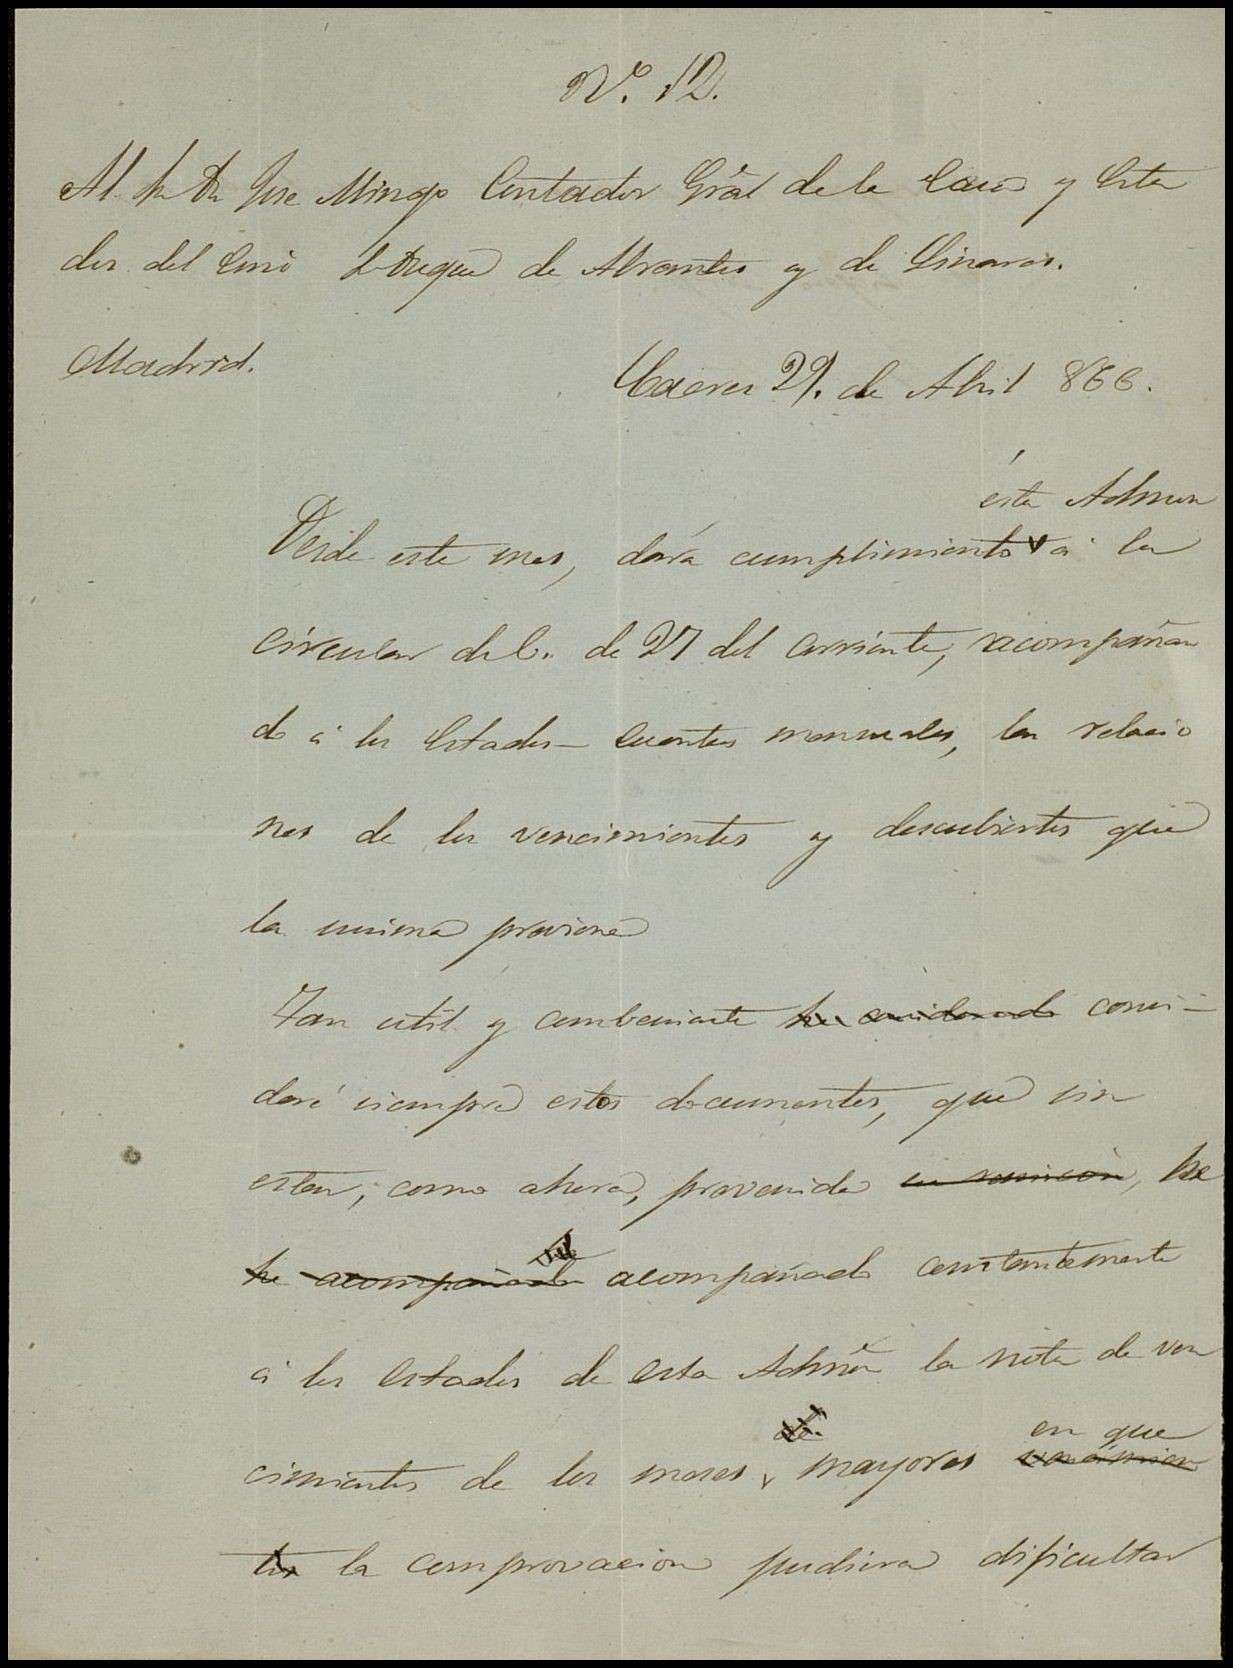 Nº. 12.
Al Sr. Dn Jose Mingo Contador Gral de la Casa y Esta
dos del Exmo Sr Duque de Abrantes y de Linares.
Madrid.
Caceres 29. de Abril 866.
ésta Admon
Desde este mes, dará cumplimiento à la
circular de C. de 27 del corriente, acompañan
do à los Estados-cuentas mensuales, las relacio
nes de los vencimientos y descubiertos que
la misma previene
Tan util y combeniente he considerado consi-
deré siempre estos documentos, que sin
estar, como ahora, prevenido su remision, he
he acompañado acompañado constantemente
à los Estados de esta Admon la nota de ven
cimientos de los meses mayores vencimien
en que
tos la comprovacion pudiera dificultar